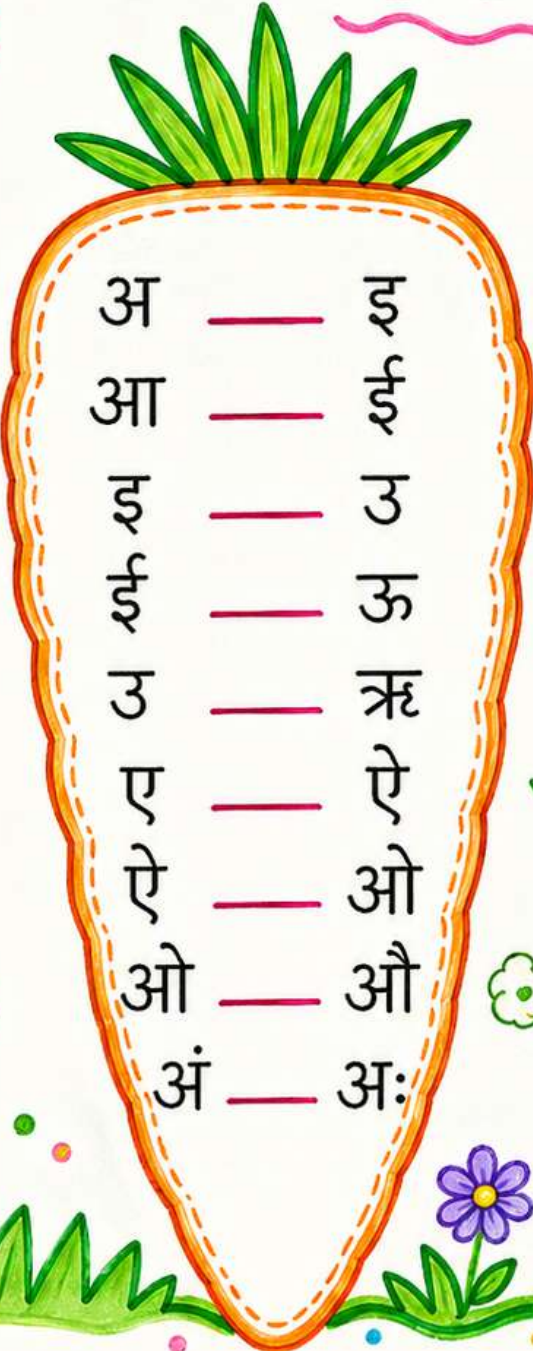 अ ___ इ
आ ___ ई
इ ___ उ
ई ___ ऊ
उ ___ ऋ
ए ___ ऐ
ऐ ___ ओ
ओ ___ औ
अं ___ अः